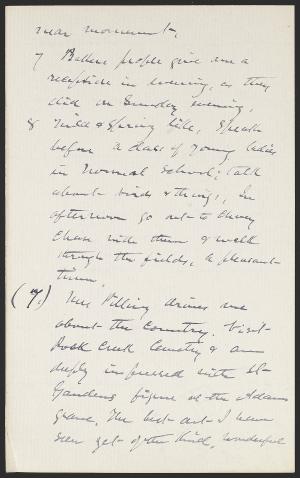 near monument.
7 Baker people give me a
reception in evening, as they
did on Sunday evening.
8 Mild & Spring like, Speak
before a class of young ladies
in Normal School; talk
about birds & things; In
afternoon go out to Chevy
Chase with them & walk
through the fields, a pleasant
time.
(7.) Mrs Pilling drives me
about the Country. Visit
Rock Creek Cemetery & am
deeply impressed with St
Gaudens figure at the Adams
grave. The best art I have
seen yet of the kind, wonderful